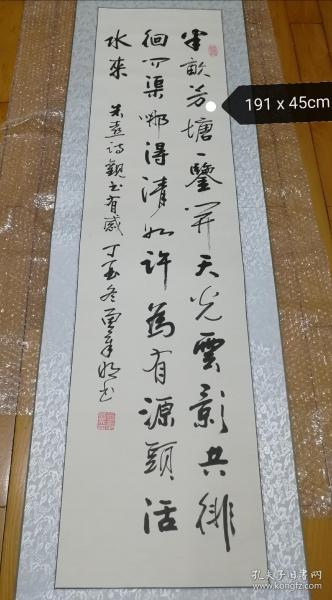 半畝方塘一鑒開天光雲影共徘
徊問渠哪得清如許為有源頭活
水來 朱熹詩觀書有感 丁酉冬
191 x 45cm
孔夫子旧书网
www.kongfz.com